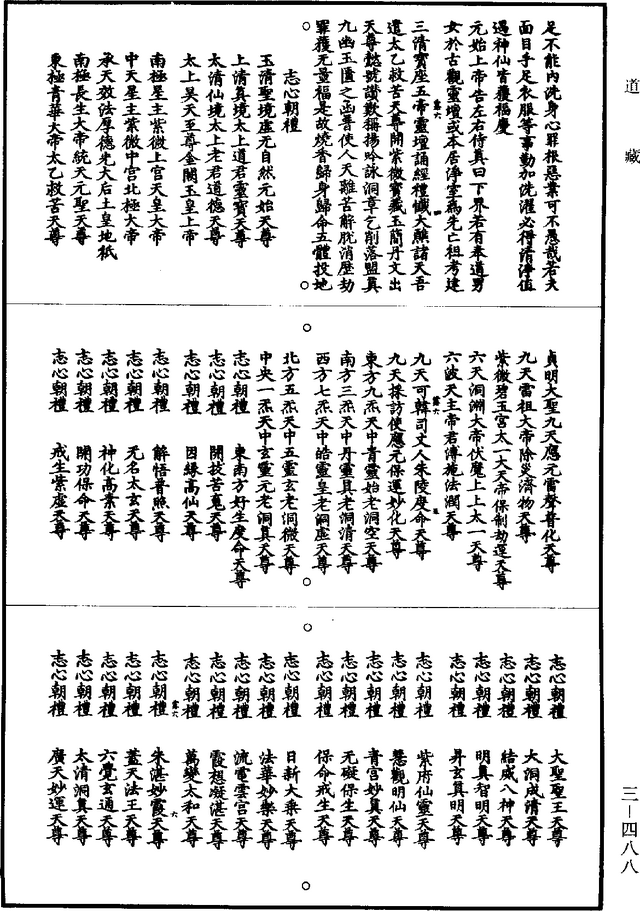 道藏
足不能內洗身心罪根惡業可不愚哉若夫
面目手足衣服等事動加洗濯必得清淨值
遇神仙皆獲福慶
元始上帝告左右侍真曰下界若有奉道男
女於古觀靈壇或本居淨室為先亡祖考建
三清寶座五帝靈壇誦經禮懺大醮諸天吾
遣太乙救苦天尊開紫微寶藏玉簡丹文出
天尊懿號讚歎稱揚吟詠洞章乞削落盟真
九幽玉匱之函普使人天難苦解脫消歷劫
罪獲无量福是故燒香歸身歸命五體投地
志心朝禮
玉清聖境虛无自然元始天尊
上清真境太上道君靈寶天尊
太清仙境太上老君道德天尊
太上昊天至尊金闕玉皇上帝
南極星主紫微上宮天皇大帝
中天星主紫微中宮北極大帝
承天效法厚德光大后土皇地祇
南極長生大帝統天元聖天尊
東極青華大帝太乙救苦天尊
貞明大聖九天應元雷聲普化天尊
九天雷祖大帝除災濟物天尊
紫微碧玉宮太一大天帝保制劫運天尊
六天洞淵大帝伏魔上上太一天尊
六波天主帝君傳施法潤天尊
九天可韓司丈人朱陵度命天尊
九天採訪使應元保運妙化天尊
東方九炁天中青靈始老洞空天尊
南方三炁天中丹靈真老洞清天尊
西方七炁天中皓靈皇老洞虛天尊
北方五炁天中五靈玄老洞微天尊
中央一炁天中玄靈元老洞真天尊
志心朝禮 東南方好生度命天尊
志心朝禮 開技苦魂天尊
志心朝禮 因緣高仙天尊
志心朝禮 解悟普照天尊
志心朝禮 无名太玄天尊
志心朝禮 神化高業天尊
志心朝禮 開功保命天尊
志心朝禮 戒生紫虛天尊
志心朝禮 大聖聖王天尊
志心朝禮 大洞成清天尊
志心朝禮 結威八神天尊
志心朝禮 明真智明天尊
志心朝禮 昇玄真明天尊
志心朝禮 紫府仙靈天尊
志心朝禮 慧觀明仙天尊
志心朝禮 青宮妙真天尊
志心朝禮 无礙保生天尊
志心朝禮 保命戒生天尊
志心朝禮 日新大乘天尊
志心朝禮 法華妙樂天尊
志心朝禮 流電雲宮天尊
志心朝禮 霞想凝湛天尊
志心朝禮 萬變太和天尊
志心朝禮 朱湛妙霞天尊
志心朝禮 蓋天法王天尊
志心朝禮 六覺玄通天尊
志心朝禮 太清洞真天尊
志心朝禮 廣天妙運天尊
三—四八八